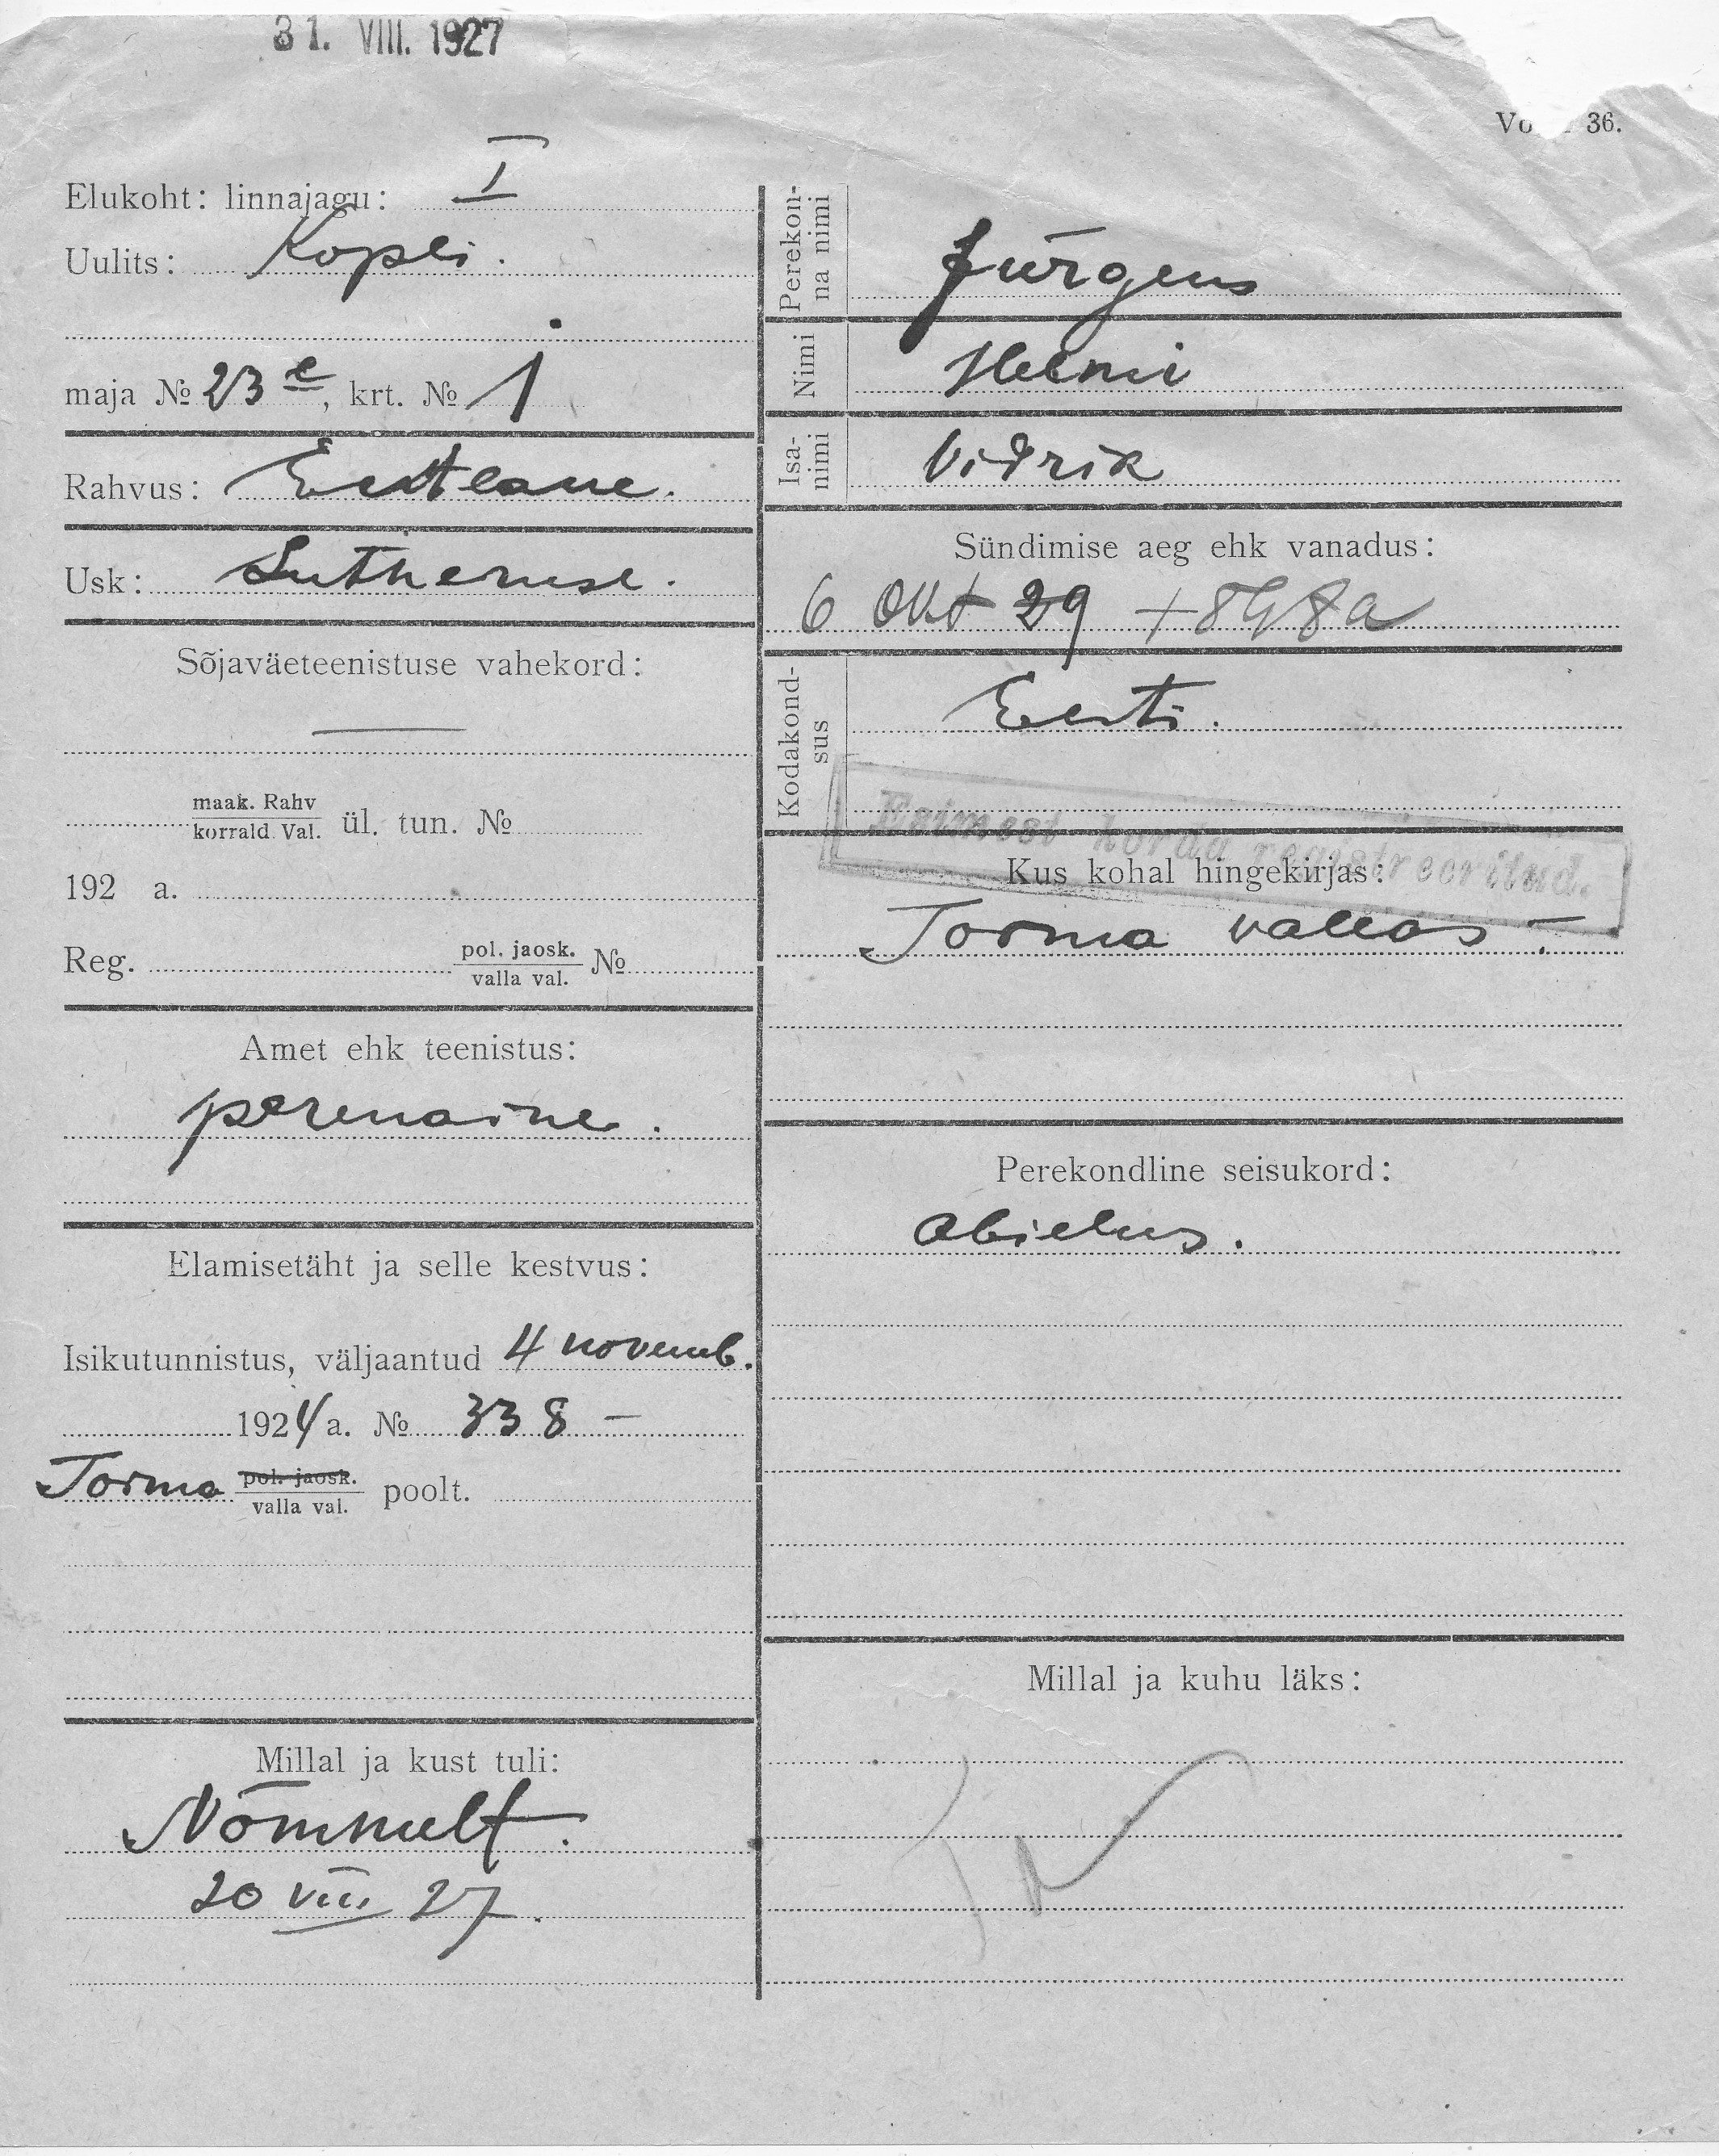 31. VIII. 1927
36.
Elukoht: linnajagu: I
Uulits: Kopli.
maja № 23 e, krt. № 1
Rahvus: Eestlane.
Usk: Lutheruse.
Sõjaväeteenistuse vahekord:
—
maak. Rahv
korrald. Val. ül. tun. №
192 a.
Reg. pol. jaosk.
valla val. №
Amet ehk teenistus:
perenaine.
Elamisetäht ja selle kestvus:
Isikutunnistus, väljaantud 4 novemb.
1924 a. № 338 —
Torma pol. jaosk.
valla val. poolt.
Millal ja kust tuli:
Nõmmelt.
20 VIII 27.
Perekon-
na nimi Jürgens
Nimi Helmi
Isa-
nimi Vidrik
Sündimise aeg ehk vanadus:
6 Okt 29
Kodakond-
sus Eesti.
Esimest korda registreeritud.
Kus kohal hingekirjas:
Torma vallas.
Perekondline seisukord:
Abielus.
Millal ja kuhu läks: